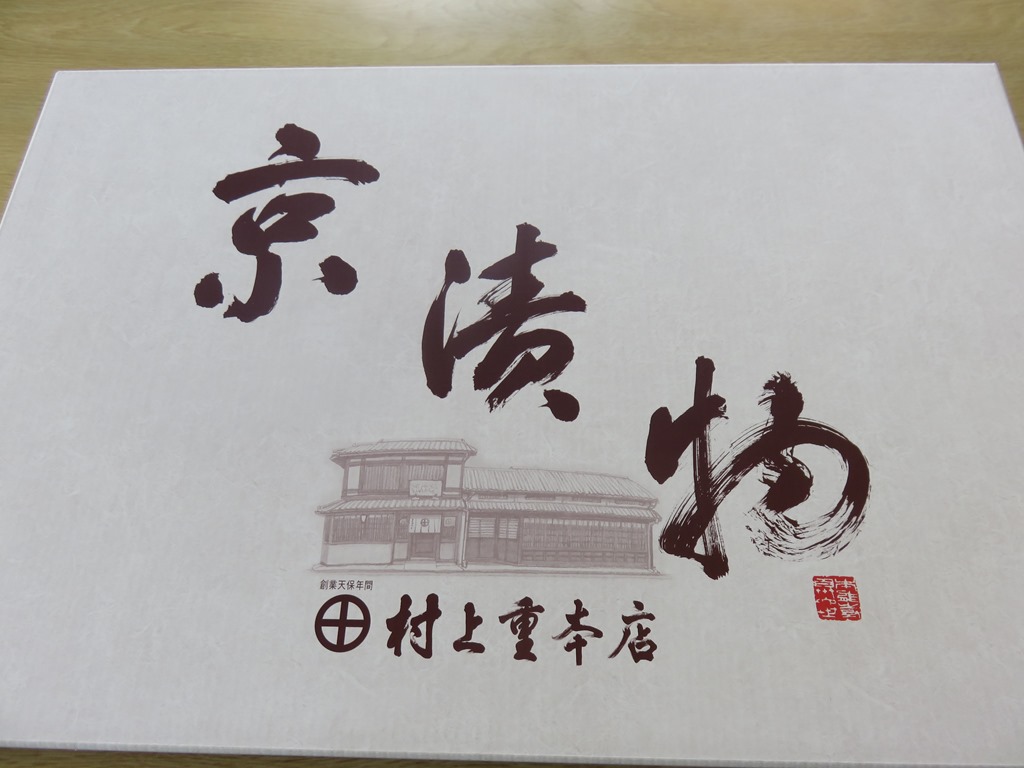 京漬物
創業天保年間
村上重本店